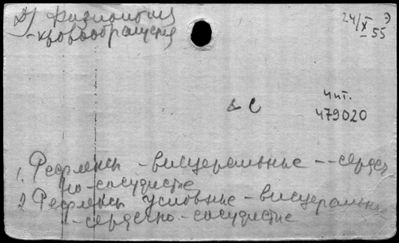 Д) физиология
- кровообращения
24/X 55 Э
& С
чит.
479020
1. Рефлексы - висцеральные - - сердеч
но - сосудистые
2 Рефлексы условные - висцеральные
- сердечно - сосудистые